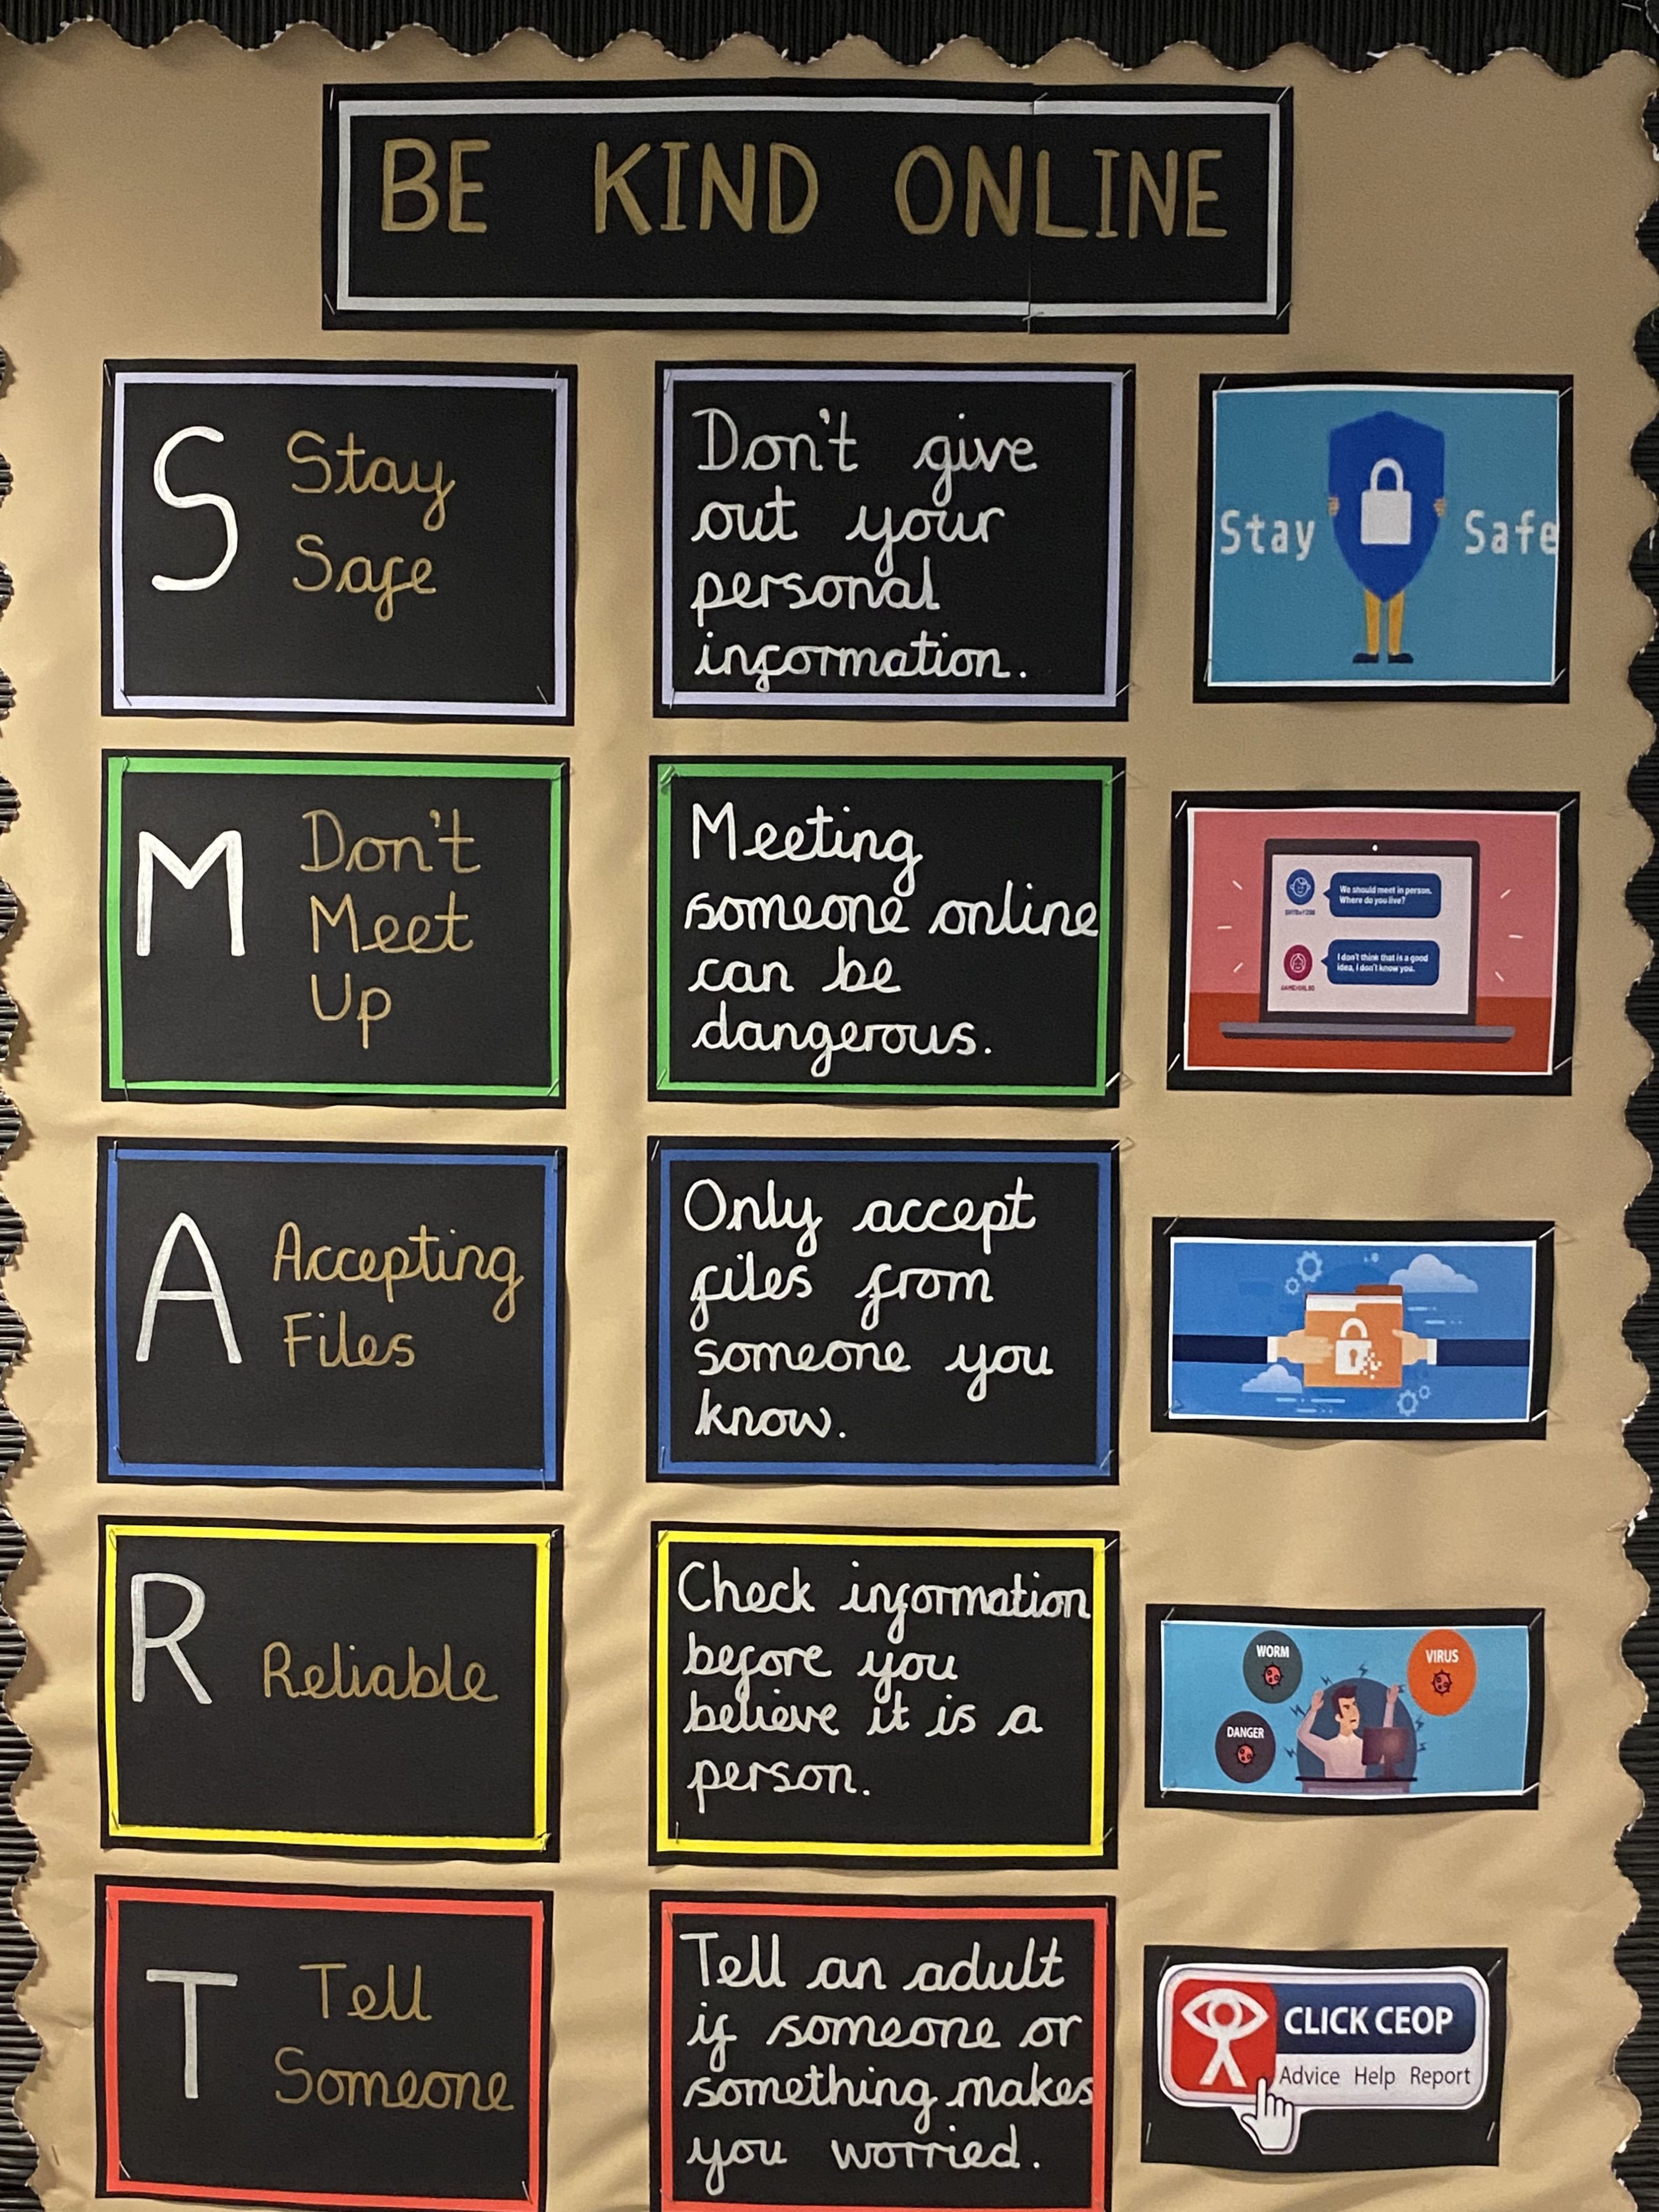 BE KIND ONLINE
S
Stay
Safe
Don't give
out your
personal
information.
Stay Safe
M
Don't
Meet
Up
Meeting
someone online
can be
dangerous.
We should meet in person.
Where do you live?
I don't think that is a good
idea, I don't know you.
A
Accepting
Files
Only accept
files from
someone you
know.
R
Reliable
Check information
before you
believe it is a
person.
WORM
VIRUS
DANGER
T
Tell
Someone
Tell an adult
if someone or
something makes
you worried.
CLICK CEOP
Advice Help Report